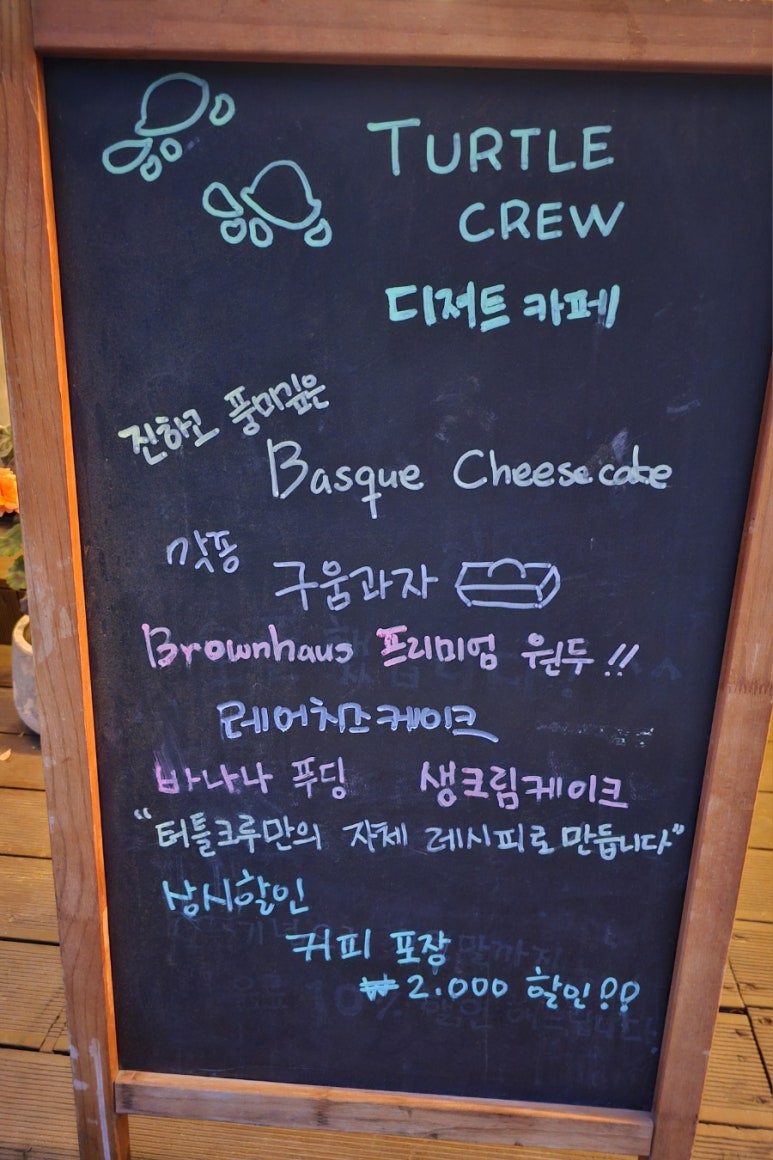 TURTLE
CREW
디저트 카페
진하고 풍미깊은
Basque Cheesecake
각종
구움과자
Brownhaus 프리미엄 원두!!
레어치즈케이크
바나나 푸딩 생크림케이크
"터틀크루만의 자체 레시피로 만듭니다"
상시할인
커피 포장
₩2.000 할인!!